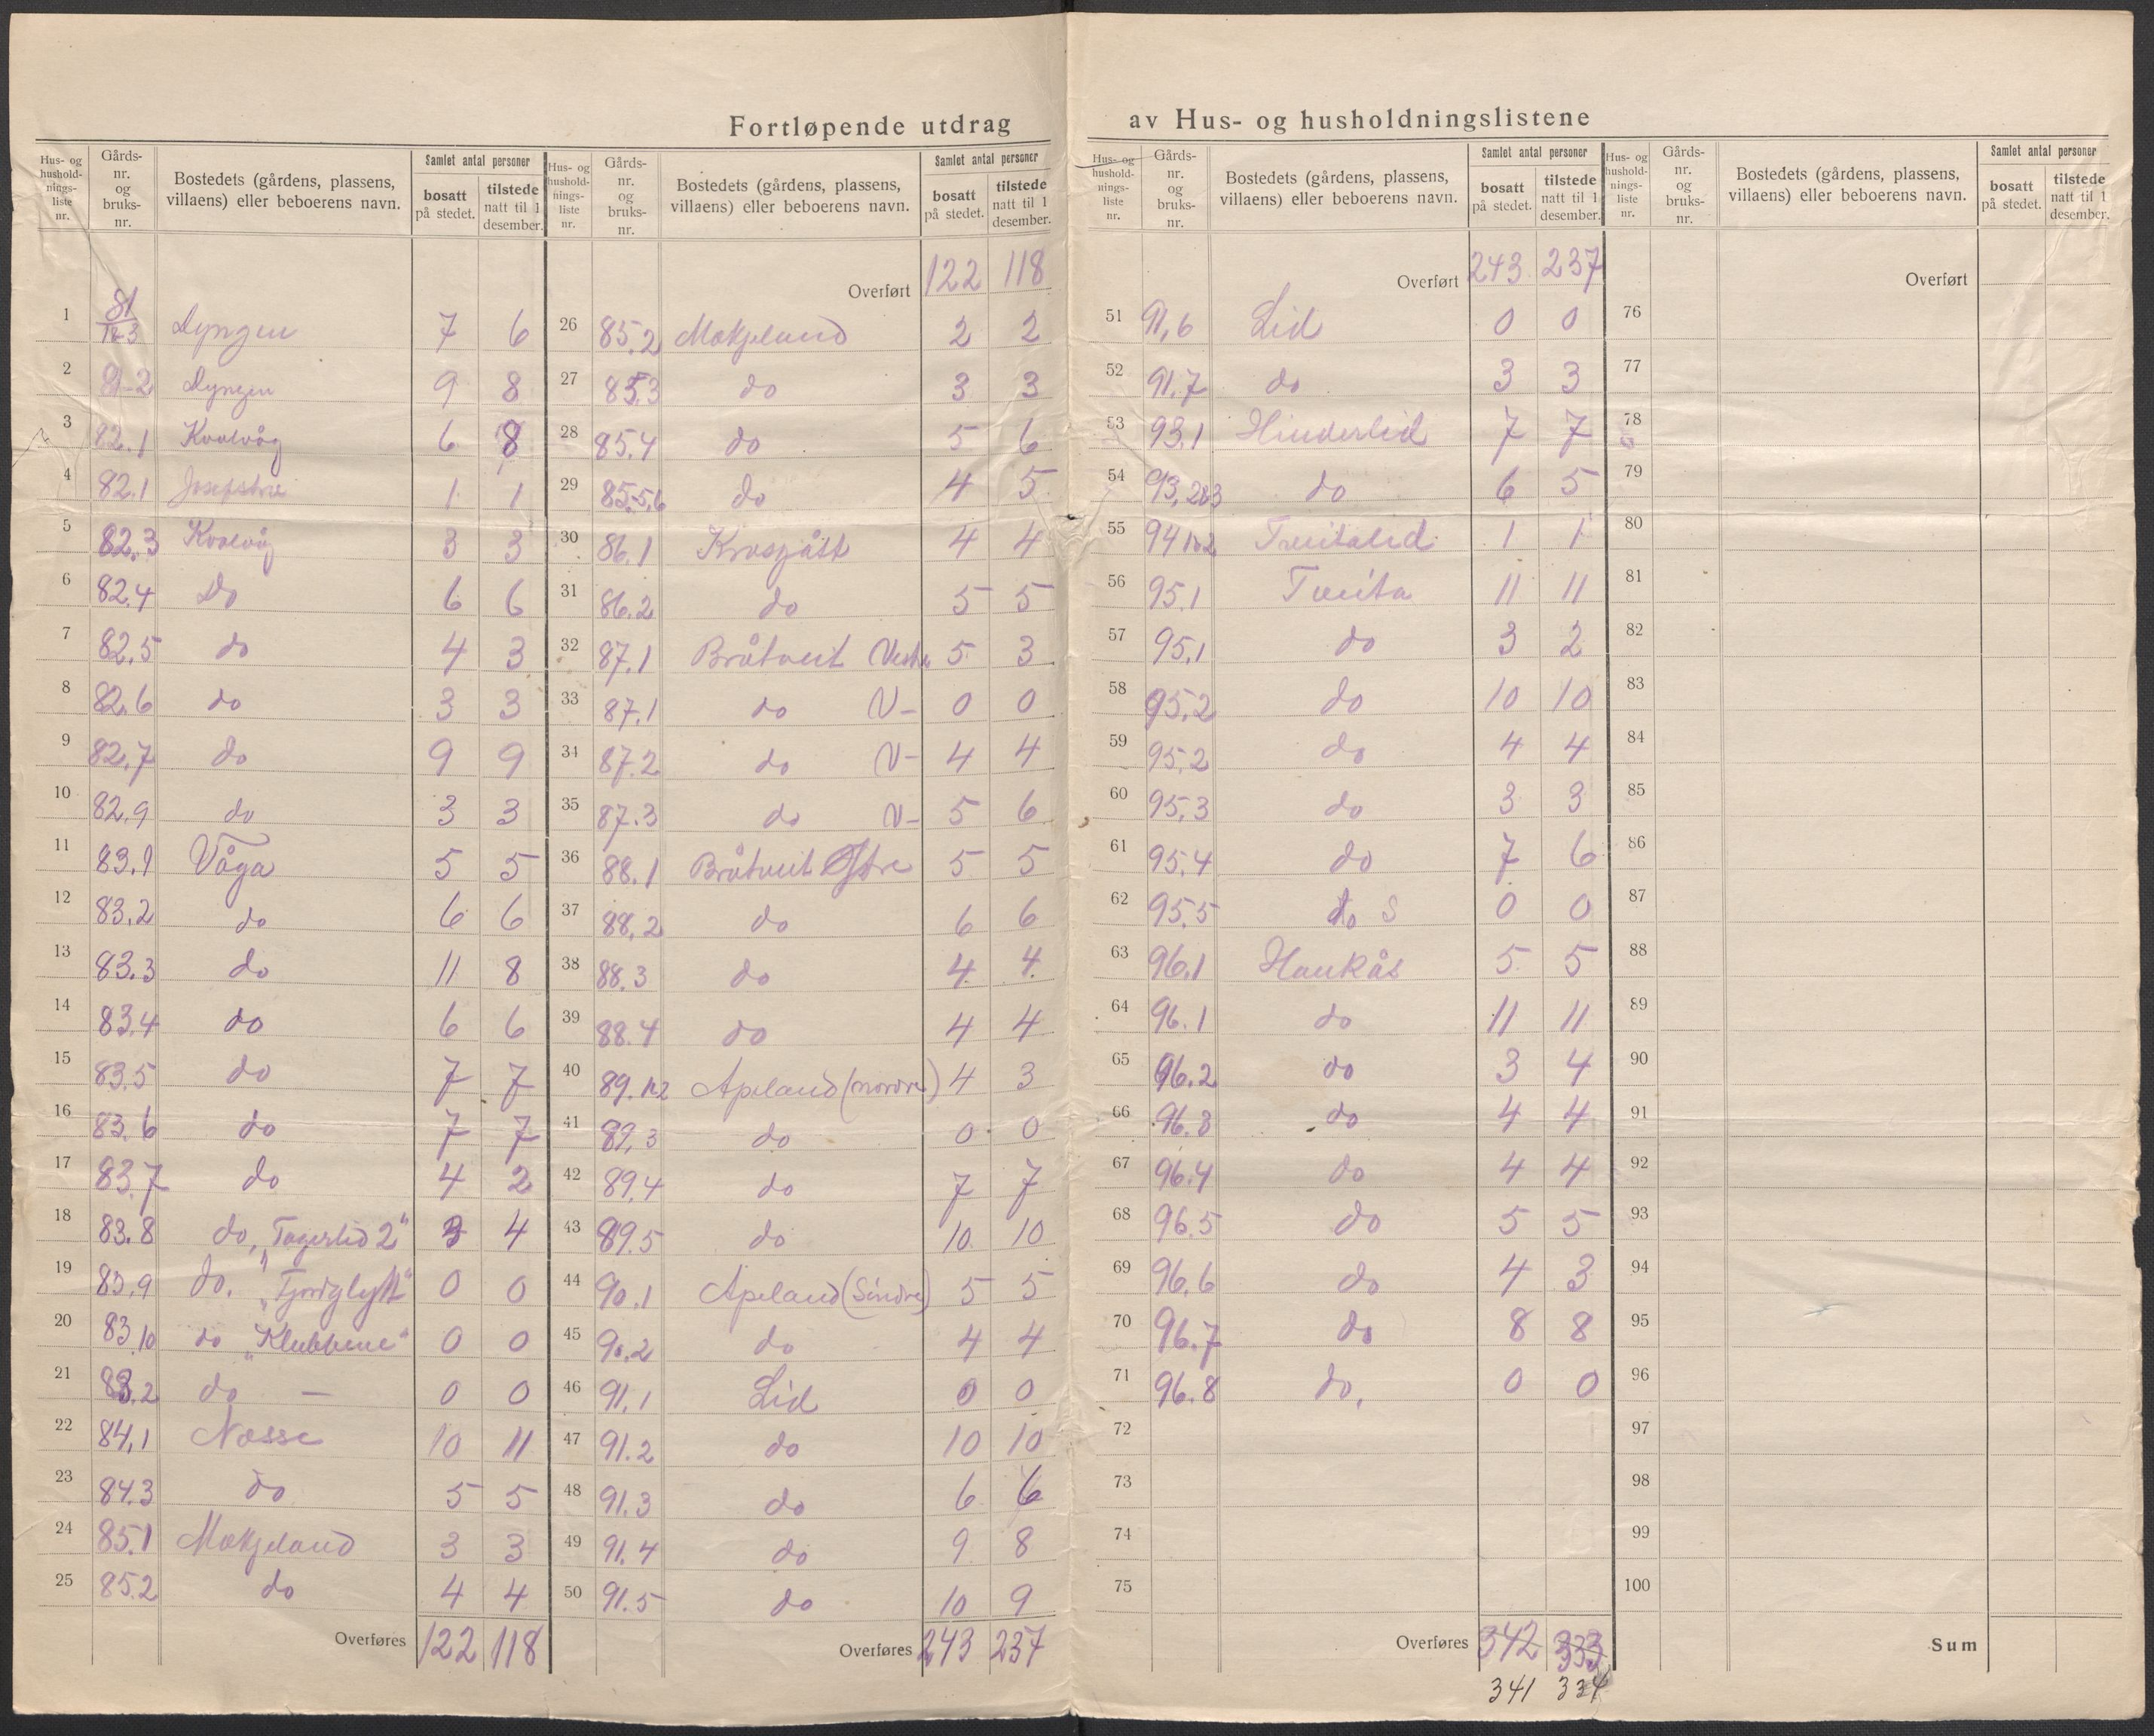 Fortløpende utdrag av Hus- og husholdningslistene
Hus- og hushold-nings-liste nr. Gårds-nr. og bruks-nr. Bostedets (gårdens, plassens, villaens) eller beboerens navn. Samlet antal personer bosatt på stedet. tilstede natt til 1 desember.
1 81 1&3 Dyngen 7 6
2 81-2 Dyngen 9 8
3 82.1 Kvalvåg 6 8
4 82.1 1 1
5 82.3 Kvalvåg 3 3
6 82.4 Do 6 6
7 82.5 do 4 3
8 82.6 do 3 3
9 82.7 do 9 9
10 82.9 do 3 3
11 83.1 Våga 5 5
12 83.2 do 6 6
13 83.3 do 11 8
14 83.4 do 6 6
15 83.5 do 7 7
16 83.6 do 7 7
17 83.7 do 4 2
18 83.8 do, „Fagerlid 2" 3 4
19 83.9 do. „Fjordglytt" 0 0
20 83.10 do „Klubbene" 0 0
21 83.2 do — 0 0
22 84.1 Nesse 10 11
23 84.3 do 5 5
24 85.1 Mækjeland 3 3
25 85.2 do 4 4
Overføres 122 118
Hus- og hushold-nings-liste nr. Gårds-nr. og bruks-nr. Bostedets (gårdens, plassens, villaens) eller beboerens navn. Samlet antal personer bosatt på stedet. tilstede natt til 1 desember.
Overført 122 118
26 85.2 Mækjeland 2 2
27 85.3 do 3 3
28 85.4 do 5 6
29 85.5,6 do 4 5
30 86.1 Krosgått 4 4
31 86.2 do 5 5
32 87.1 Bråtveit Vestre 5 3
33 87.1 do V- 0 0
34 87.2 do V- 4 4
35 87.3 do V- 5 6
36 88.1 Bråtveit Østre 5 5
37 88.2 do 6 6
38 88.3 do 4 4
39 88.4 do 4 4
40 89.1&2 Apeland (nordre) 4 3
41 89.3 do 0 0
42 89.4 do 7 7
43 89.5 do 10 10
44 90.1 Apeland (Søndre) 5 5
45 90.2 do 4 4
46 91.1 Lid 0 0
47 91.2 do 10 10
48 91.3 do 6 6
49 91.4 do 9 8
50 91.5 do 10 9
Overføres 243 237
Hus- og hushold-nings-liste nr. Gårds-nr. og bruks-nr. Bostedets (gårdens, plassens, villaens) eller beboerens navn. Samlet antal personer bosatt på stedet. tilstede natt til 1 desember.
Overført 243 237
51 91.6 Lid 0 0
52 91.7 do 3 3
53 93.1 Hinderlid 7 7
54 93.2&3 do 6 5
55 94 1&2 Tveitalid 1 1
56 95.1 Tveita 11 11
57 95.1 do 3 2
58 95.2 do 10 10
59 95.2 do 4 4
60 95.3 do 3 3
61 95.4 do 7 6
62 95.5 do S 0 0
63 96.1 Haukås 5 5
64 96.1 do 11 11
65 96.2 do 3 4
66 96.3 do 4 4
67 96.4 do 4 4
68 96.5 do 5 5
69 96.6 do 4 3
70 96.7 do 8 8
71 96.8 do. 0 0
72
73
74
75
Overføres 342 333
341 334
Hus- og hushold-nings-liste nr. Gårds-nr. og bruks-nr. Bostedets (gårdens, plassens, villaens) eller beboerens navn. Samlet antal personer bosatt på stedet. tilstede natt til 1 desember.
Overført
76
77
78
79
80
81
82
83
84
85
86
87
88
89
90
91
92
93
94
95
96
97
98
99
100
Sum